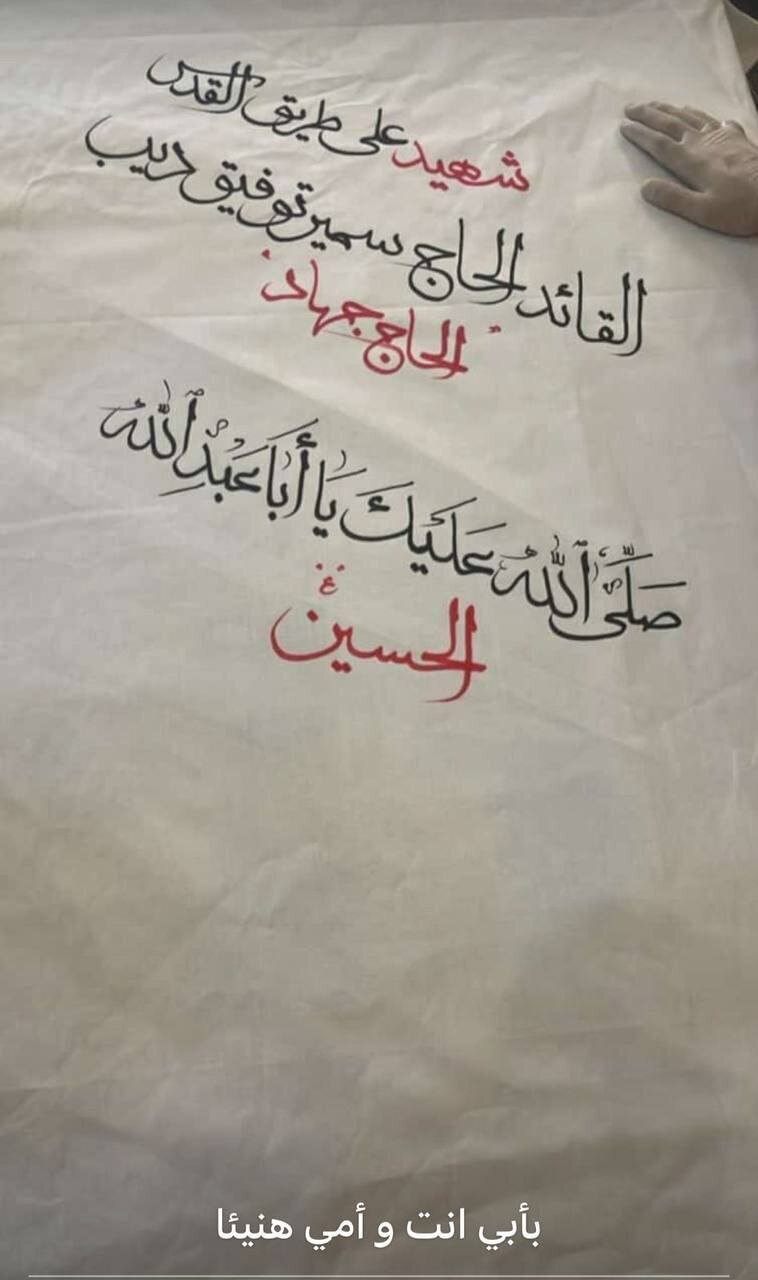 شهيد على طريق القدس
القائد الحاج سمير توفيق ديب
الحاج جهاد
صَلَّى ٱللهُ عَلَيْكَ يَا أَبَا عَبْدِ ٱللهِ
الحسين
ع
بأبي انت و أمي هنيئا